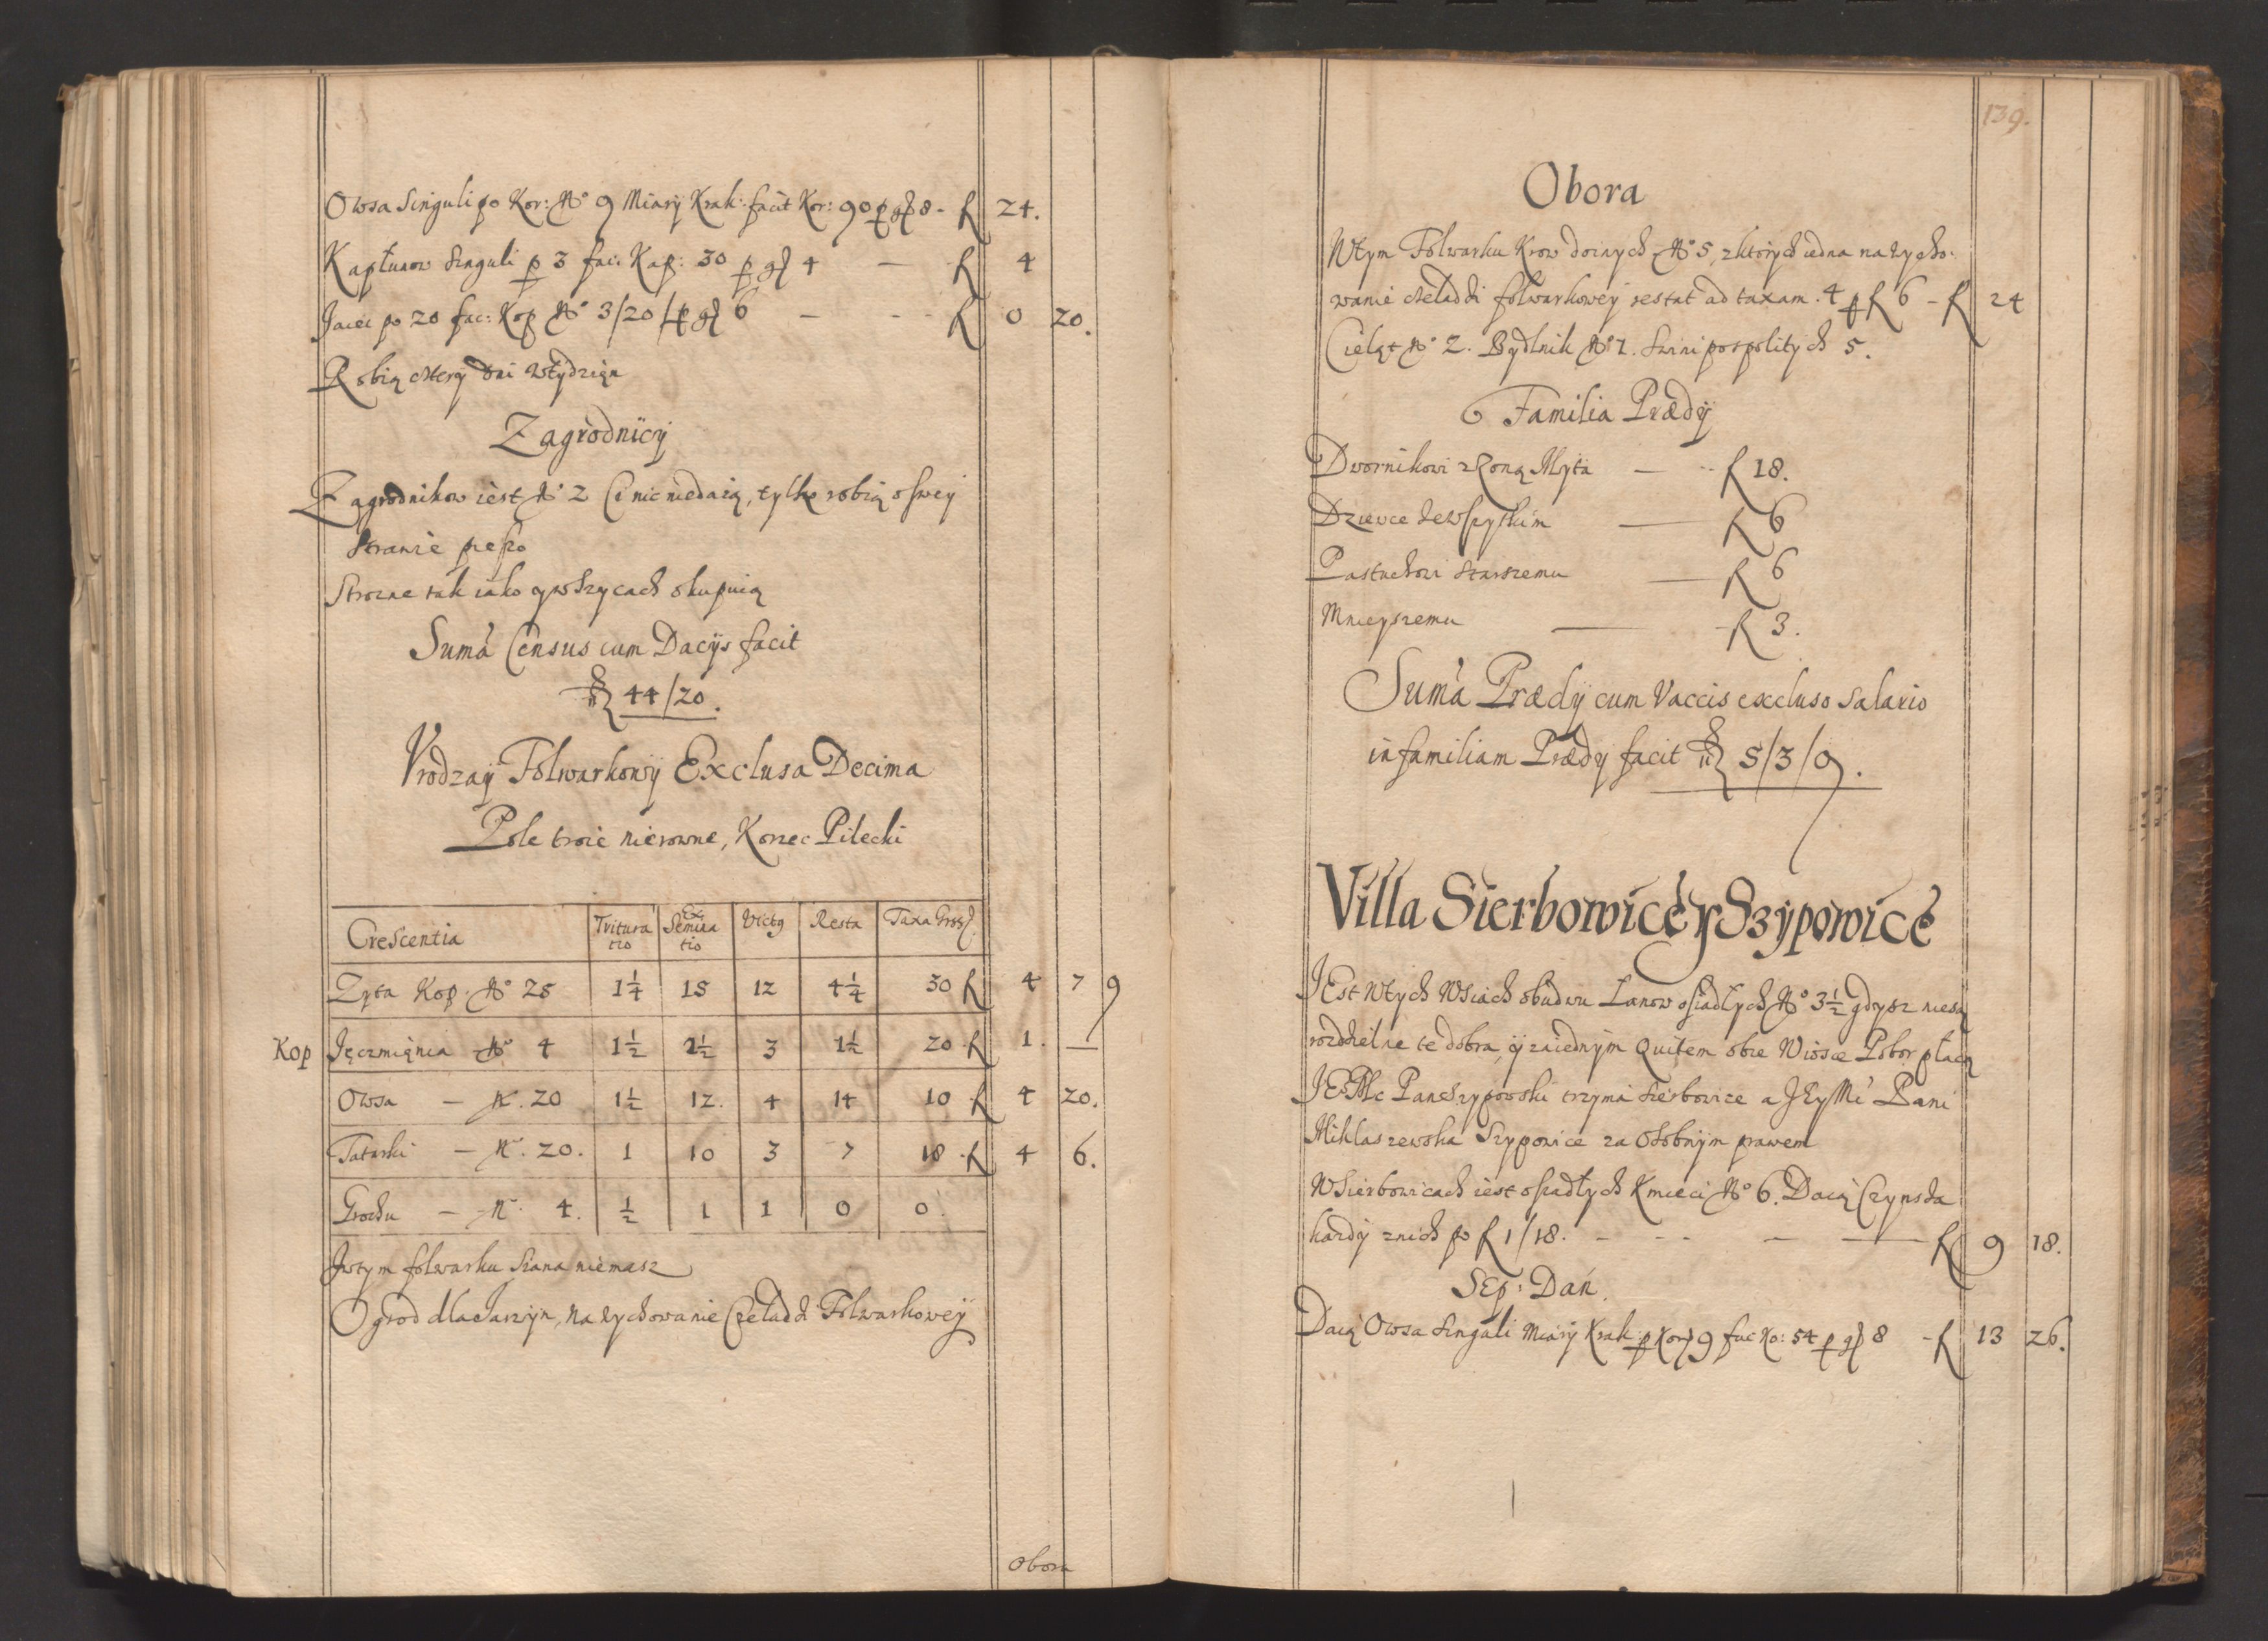 Owsa Singuli po Kor: No 9 Miary Krak: facit Kor: 90 p gł 8 - fl 24.
Kapłunow Singuli p 3 faci Kap: 30 p gł 4 — fl 4
Jaiec po 20 fac: Kop No 3/20/ p gł 6 — - - fl 0 20.
Robią cztery Dni w tydzięn
Zagrodnicy
Zagrodnikow iest No 2 Ci nic niedaią, tylko robią o swey
Strawie pieszo
Strozne tak iako y w Szycach okupuią
Suma Census cum Dacijs facit
44/20.
Vrodzay Folwarkowy Exclusa Decima
Pole troie nierowne, Korzec Pilecki
Crescentia Tritura tio Ex Semina tio Victg Resta Taxa Gross
Zyta Kop. No 25 1¼ 15 12 4¼ 30 fl 4 7 9
Kop Jęczmięnia No 4 1½ 2½ 3 1½ 20 fl 1. —
Owsa — N. 20 1½ 12. 4 14 10 fl 4 20.
Tatarki — N. 20. 1 10 3 7 18 fl 4 6.
Grochu — N. 4. ½ 1 1 0 0.
W tym folwarku Siana niemasz
Ogrod dla Jarzyn, na zychowanie Czeladzi Folwarkowey
Obora
139.
Obora
W tym Folwarku Krow doinych No 5, z ktorych iedna na wycho:
wanie czeladzi folwarkowey restat ad taxam. 4 p fl 6 - fl 24
Cieląt No 2. Bydlnik No 1. Swini pospolitych 5.
Familia Prædij
Dwornikowi z Zoną Myta — - - fl 18.
Dziewce ze wszystkim — fl 6
Pastuchowi Starszemu — fl 6
Mnieyszemu — fl 3.
Suma Prædij cum Vaccis excluso Salario
in familiam Prædij facit 5/3/9.
Villa Sierbowice y Szypowice
JEst w tych Wsiach obudwu Lanow osiadłych No 3½ gdysz niesą
rozdzielne te dobra, y za iednym Quitem obie Wiosce Pobor płacą
JE Mc Pan Szypowski trzyma Sierbowice a JEy Mć Pani
Miklaszewska Szypowice za Osobnym prawem
W Sierbowicach iest osiadłych Kmieci No 6. Daią Czynsza
kazdy znich po fl 1/18. - - - — — fl 9 18.
SEp: Dań.
Daią Owsa Singuli Miary Krak: p Kor 9 fac Ko: 54 p gł 8 - fl 13 26.